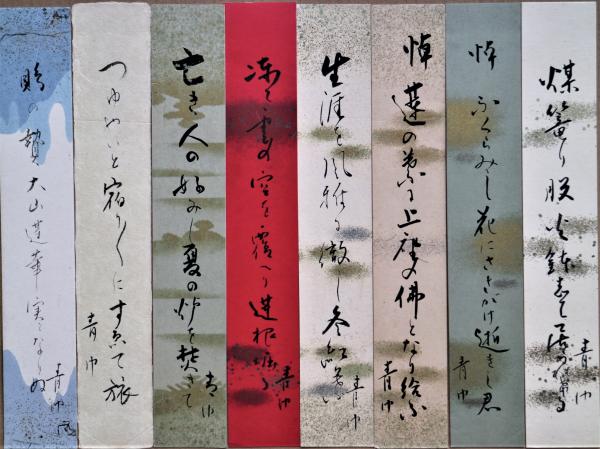 煤籠り股火鉢して
青巾
悼 ふくらみし花にさきがけ逝きし君
青巾
悼 蓮の葉の上座の佛となり給ふ
青巾
生涯を風雅に徹し冬紅葉
青巾
凍て雲の空を覆へり蓮根堀る
青巾
亡き人の好みし夏の炉を焚きて
青巾
つゆやいと宿りにすゑて旅
青巾
賜の贄大山蓮華実となりぬ
青巾